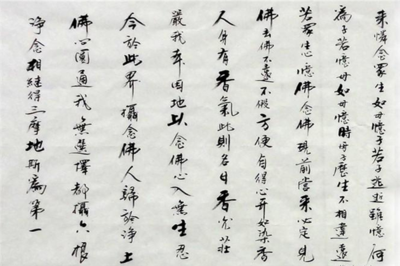 來憐念眾生如母憶子若子逃逝雖憶何
為子若憶母如母憶時母子歷生不相違遠
若眾生心憶佛念佛現前當來必定見
佛去佛不遠不假方便自得心開如染香
人身有香氣此則名曰香光莊
嚴我本因地以念佛心入無生忍
今於此界攝念佛人歸於淨土
佛問圓通我無選擇都攝六根
淨念相繼得三摩地斯為第一